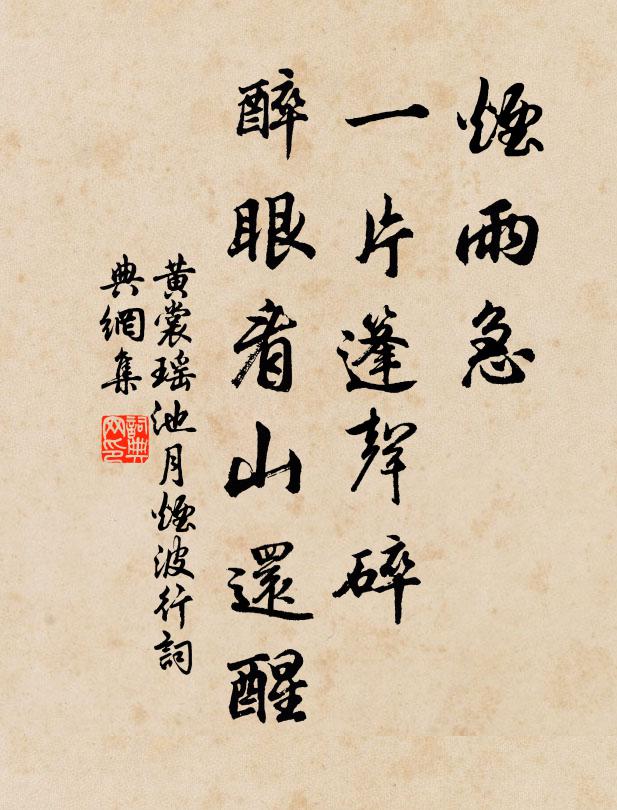 煙雨急
一片篷聲碎
醉眼看山還醒
黄裳瑶池月煙波行詞
典網集
詞典
网印